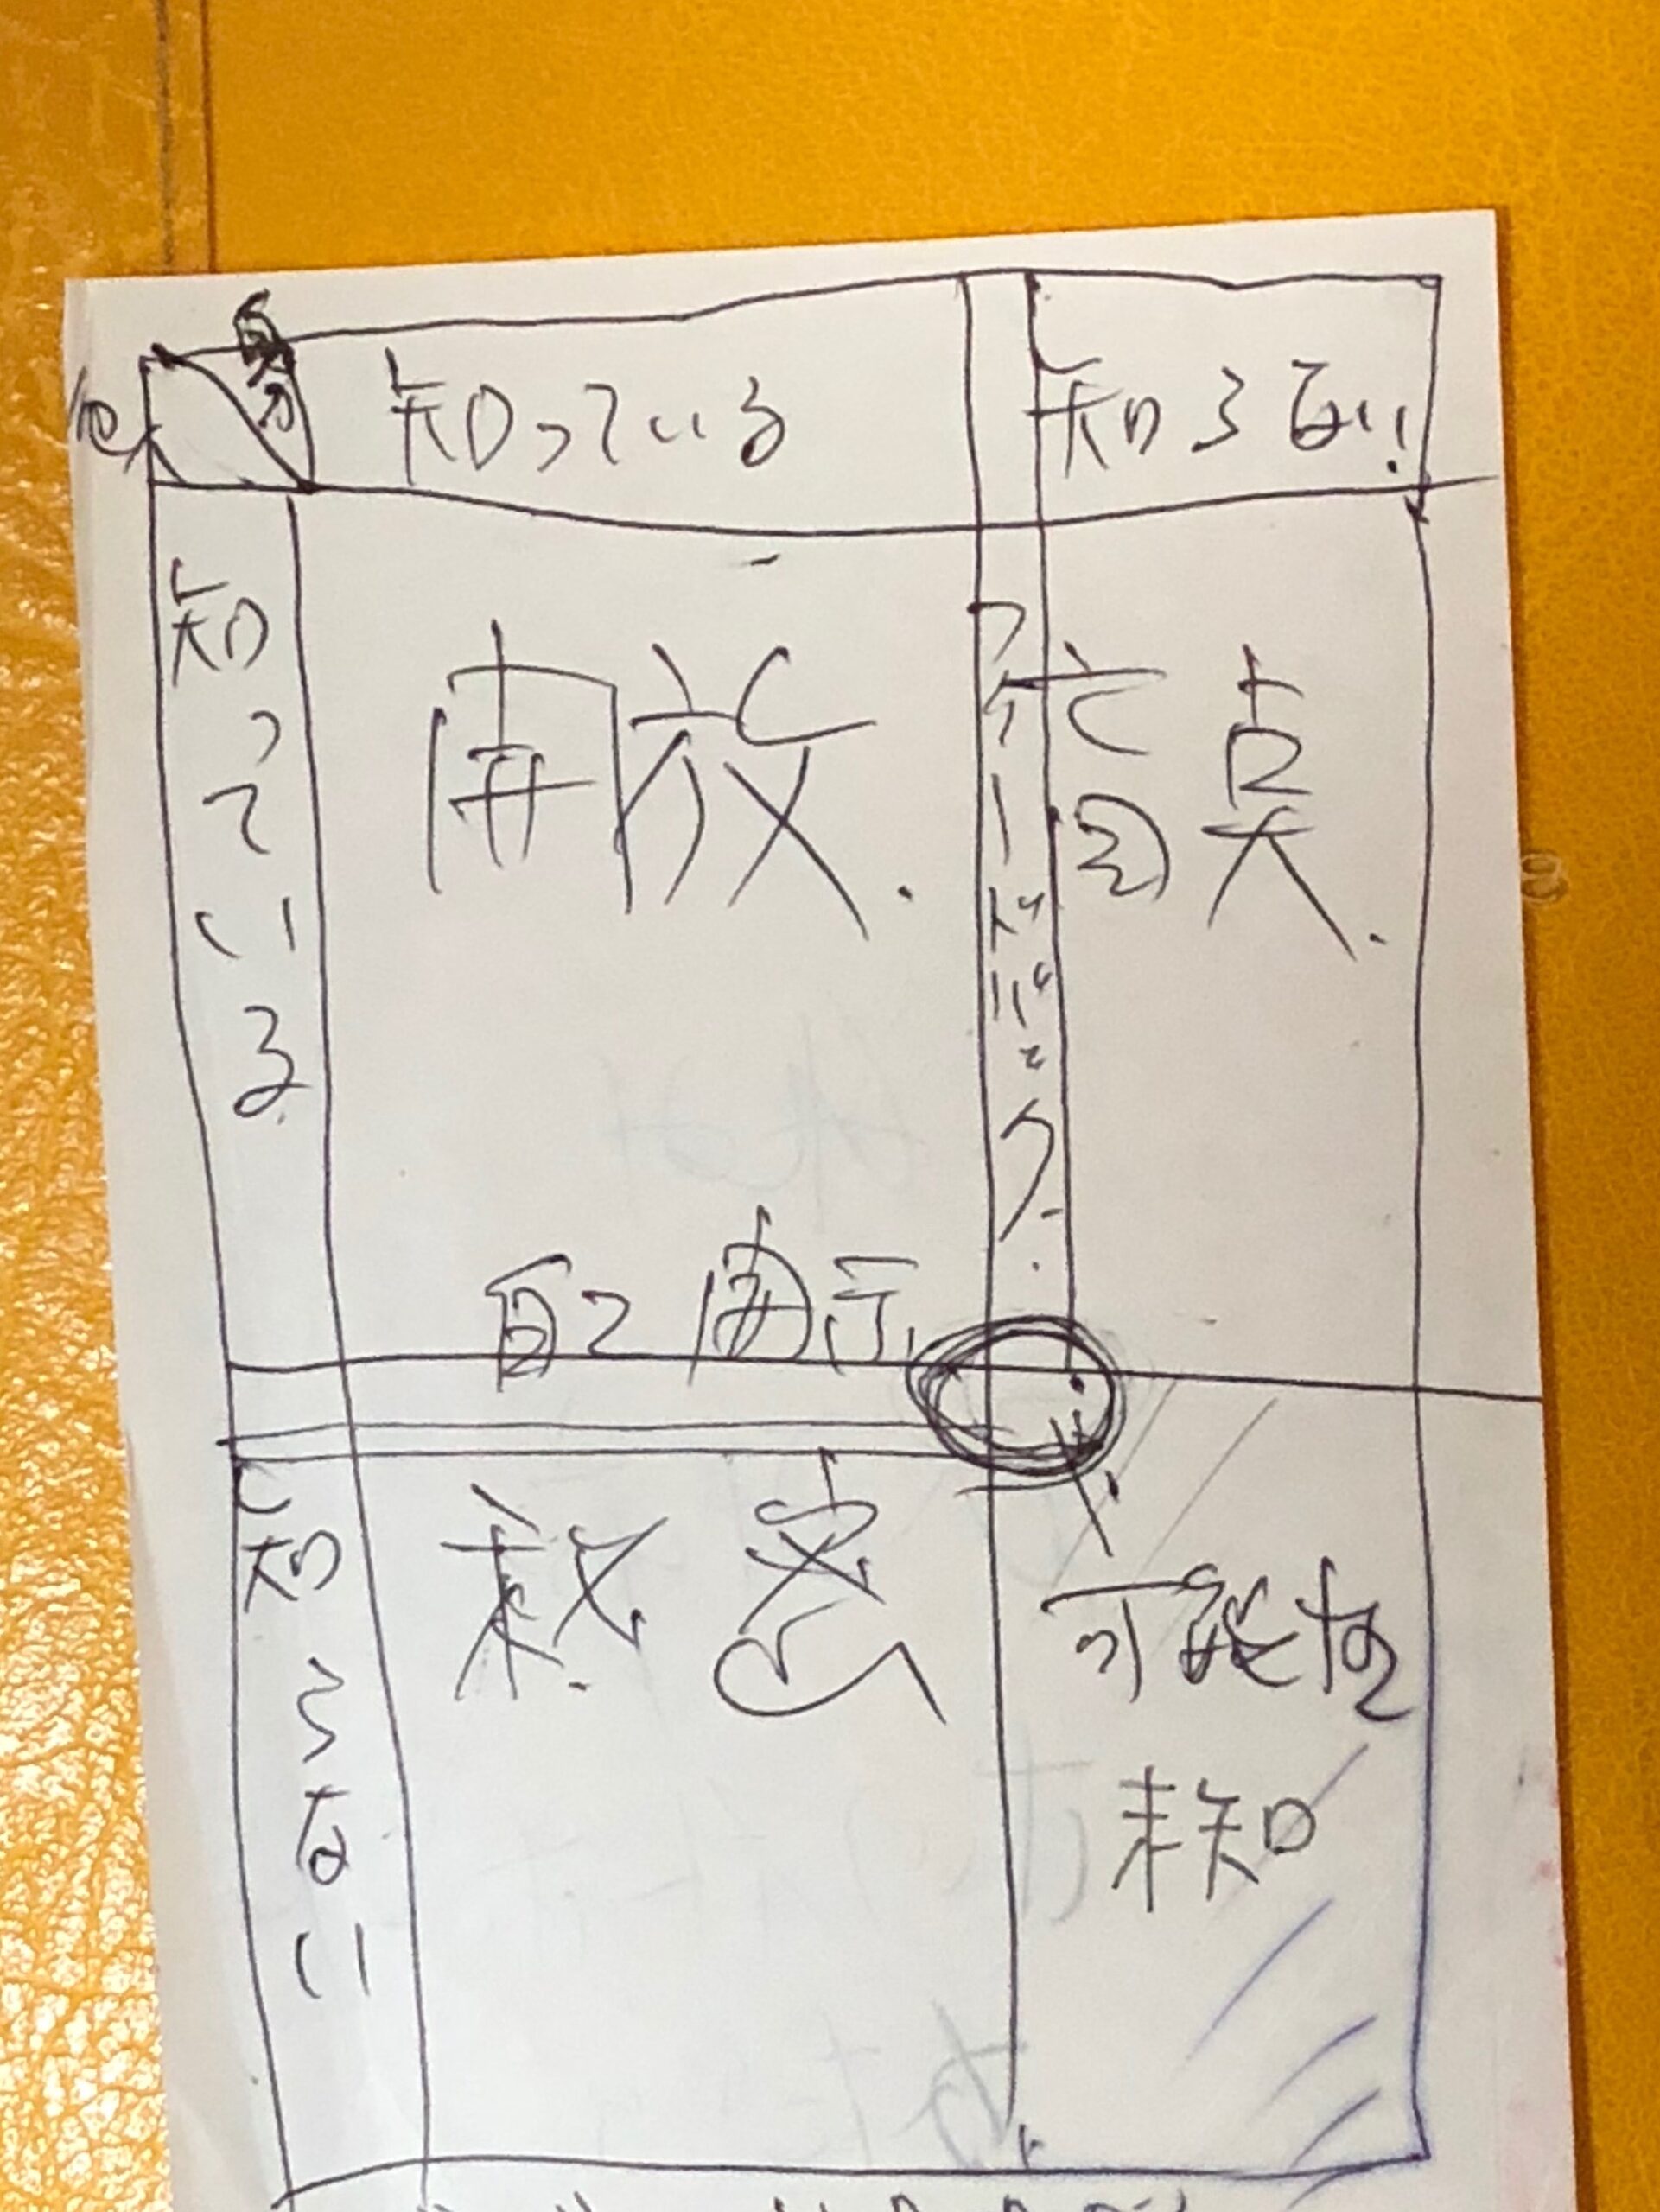 自分
他
知っている
知らない
知っている
開放
フィードバック
盲点
自己開示
知らない
秘密
可能性
未知